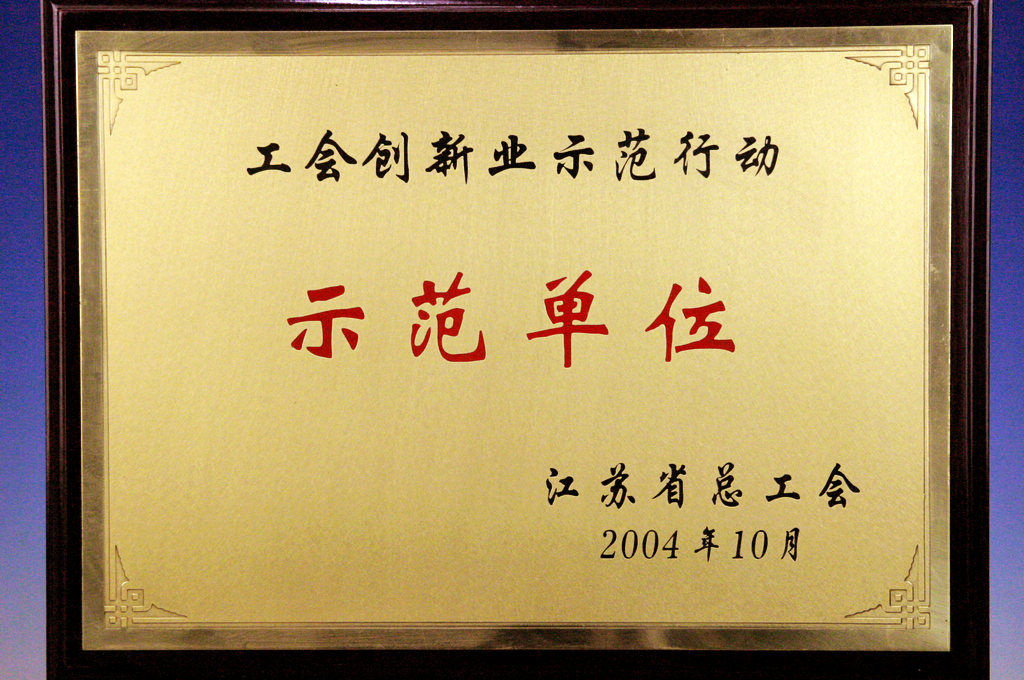 工会创新业示范行动
示范单位
江苏省总工会
2004年10月